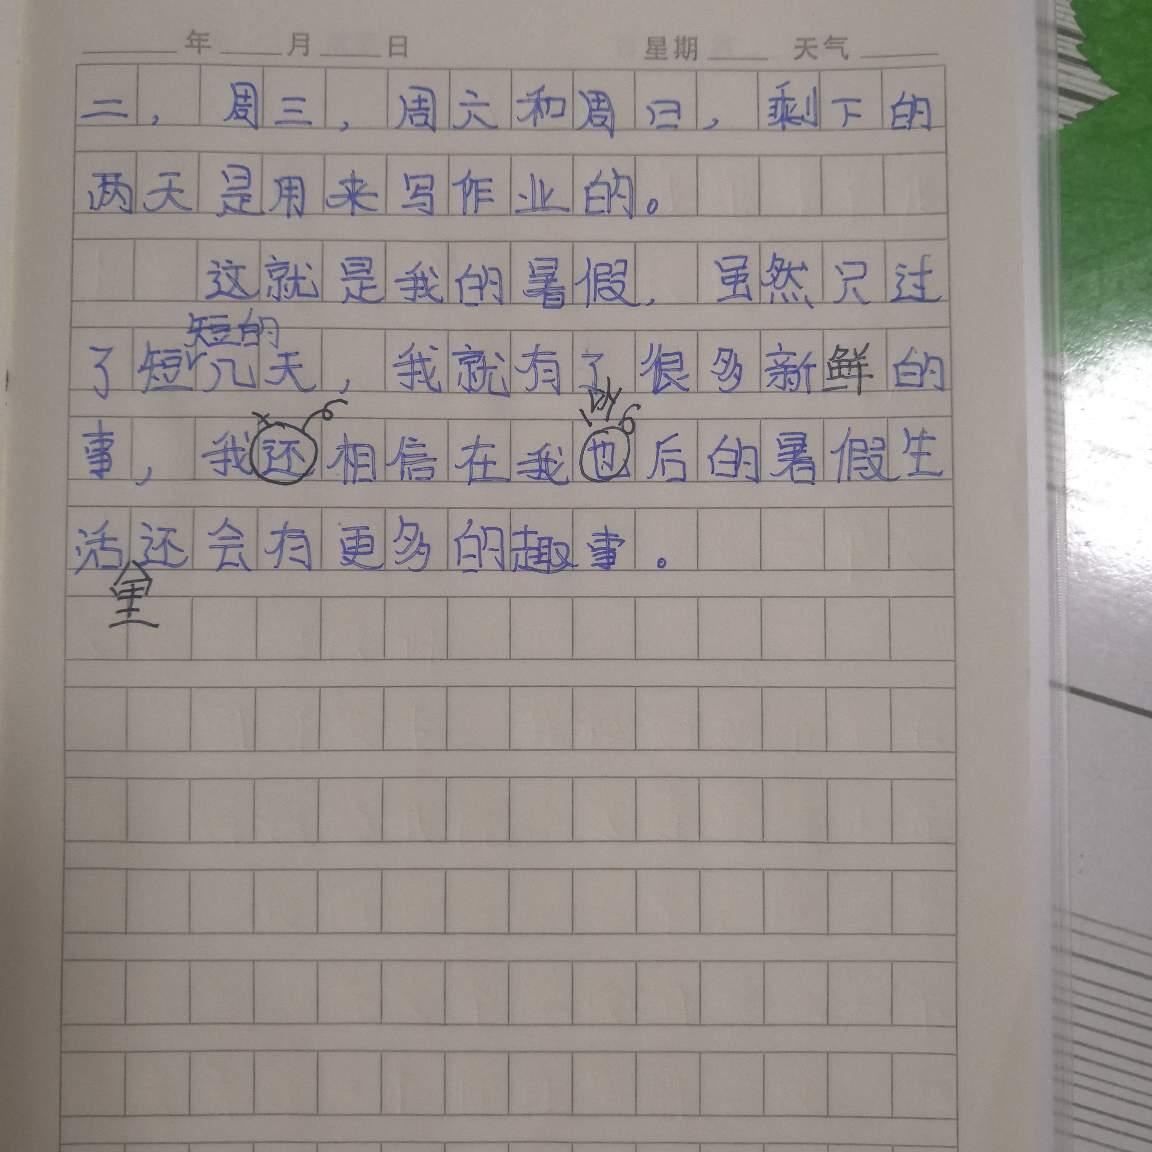 年 月 日 星期 天气
二，周三，周六和周日，剩下的
两天是用来写作业的。
这就是我的暑假，虽然只过
了短短的几天，我就有了很多新鲜的
事，我还相信在我也后的暑假生
活还会有更多的趣事。
里